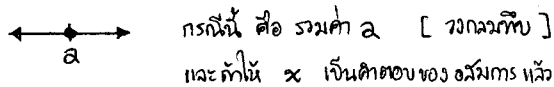 กรณีนี้ คือ รวมค่า a [ วงกลมทึบ ]
a
และถ้าให้ x เป็นคำตอบของ อสมการ แล้ว